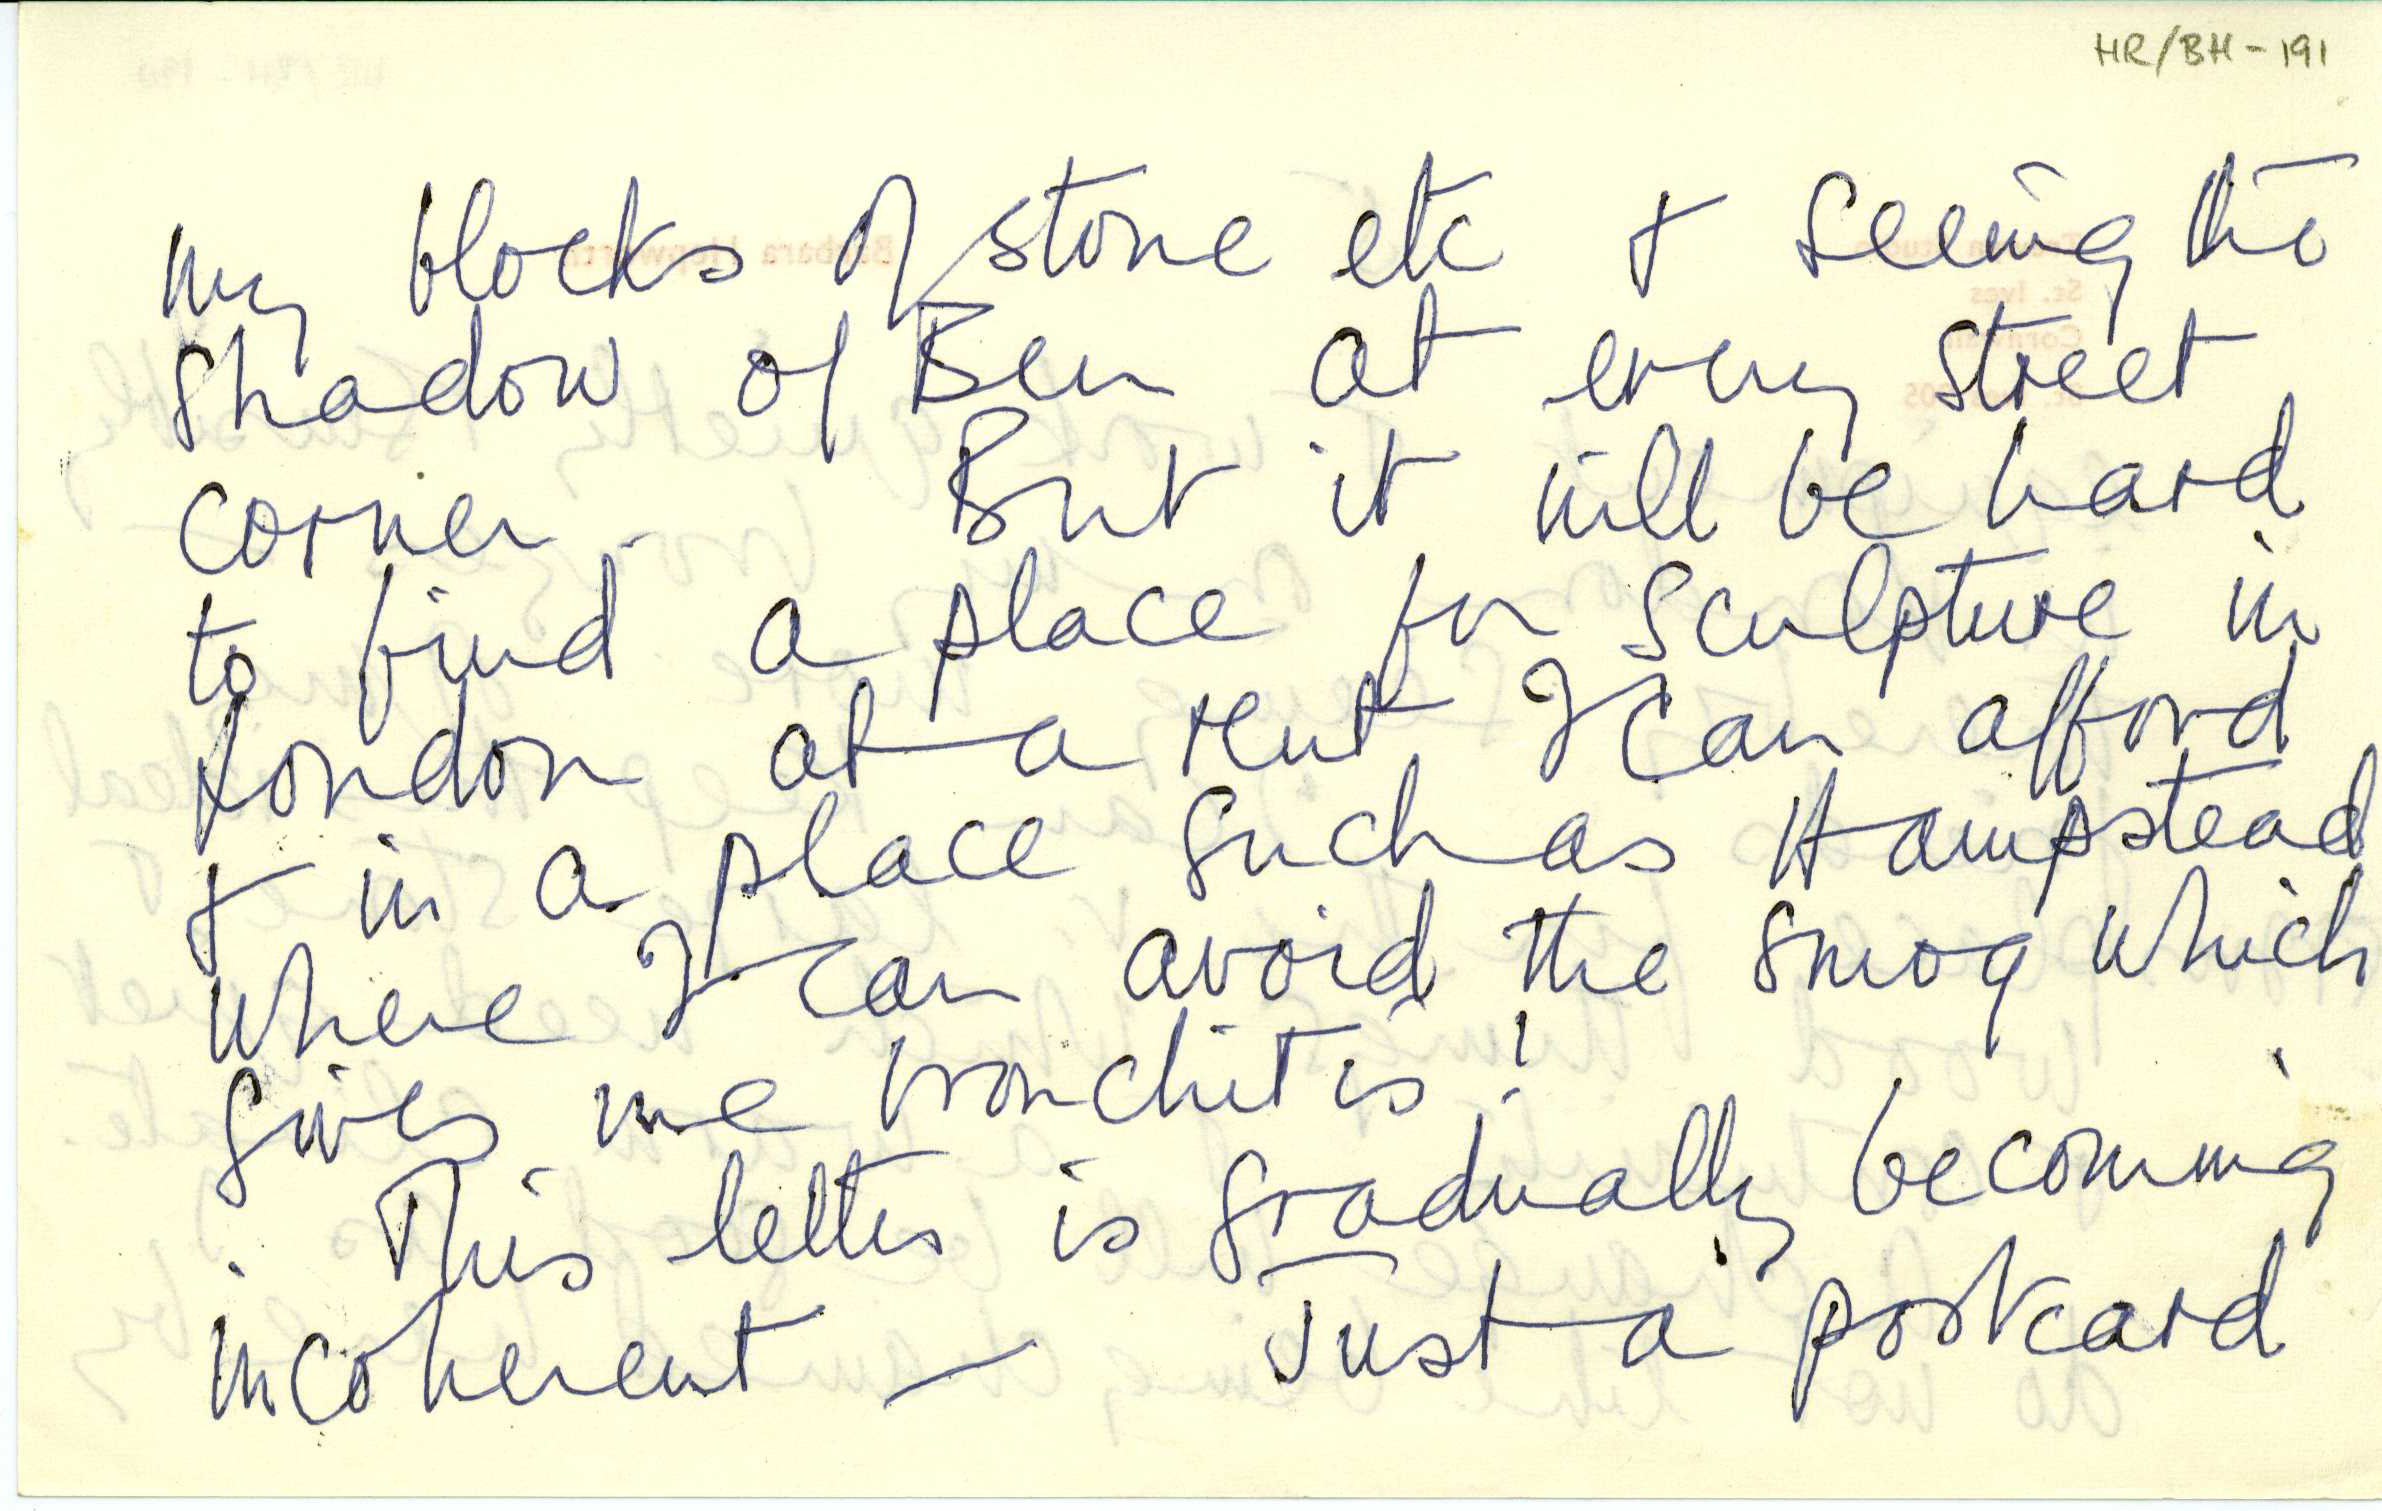 HR/BH - 191
my blocks of stone etc + seeing the
shadow of Ben at every street
corner. But it will be hard
to find a place for sculpture in
London at a rent I can afford
+ in a place such as Hampstead
where I can avoid the smog which
gives me bronchitis!
This letter is gradually becoming
incoherent — Just a postcard